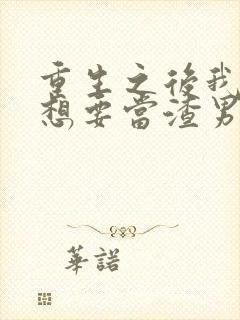 重生之後我
想要當渣男
華諾